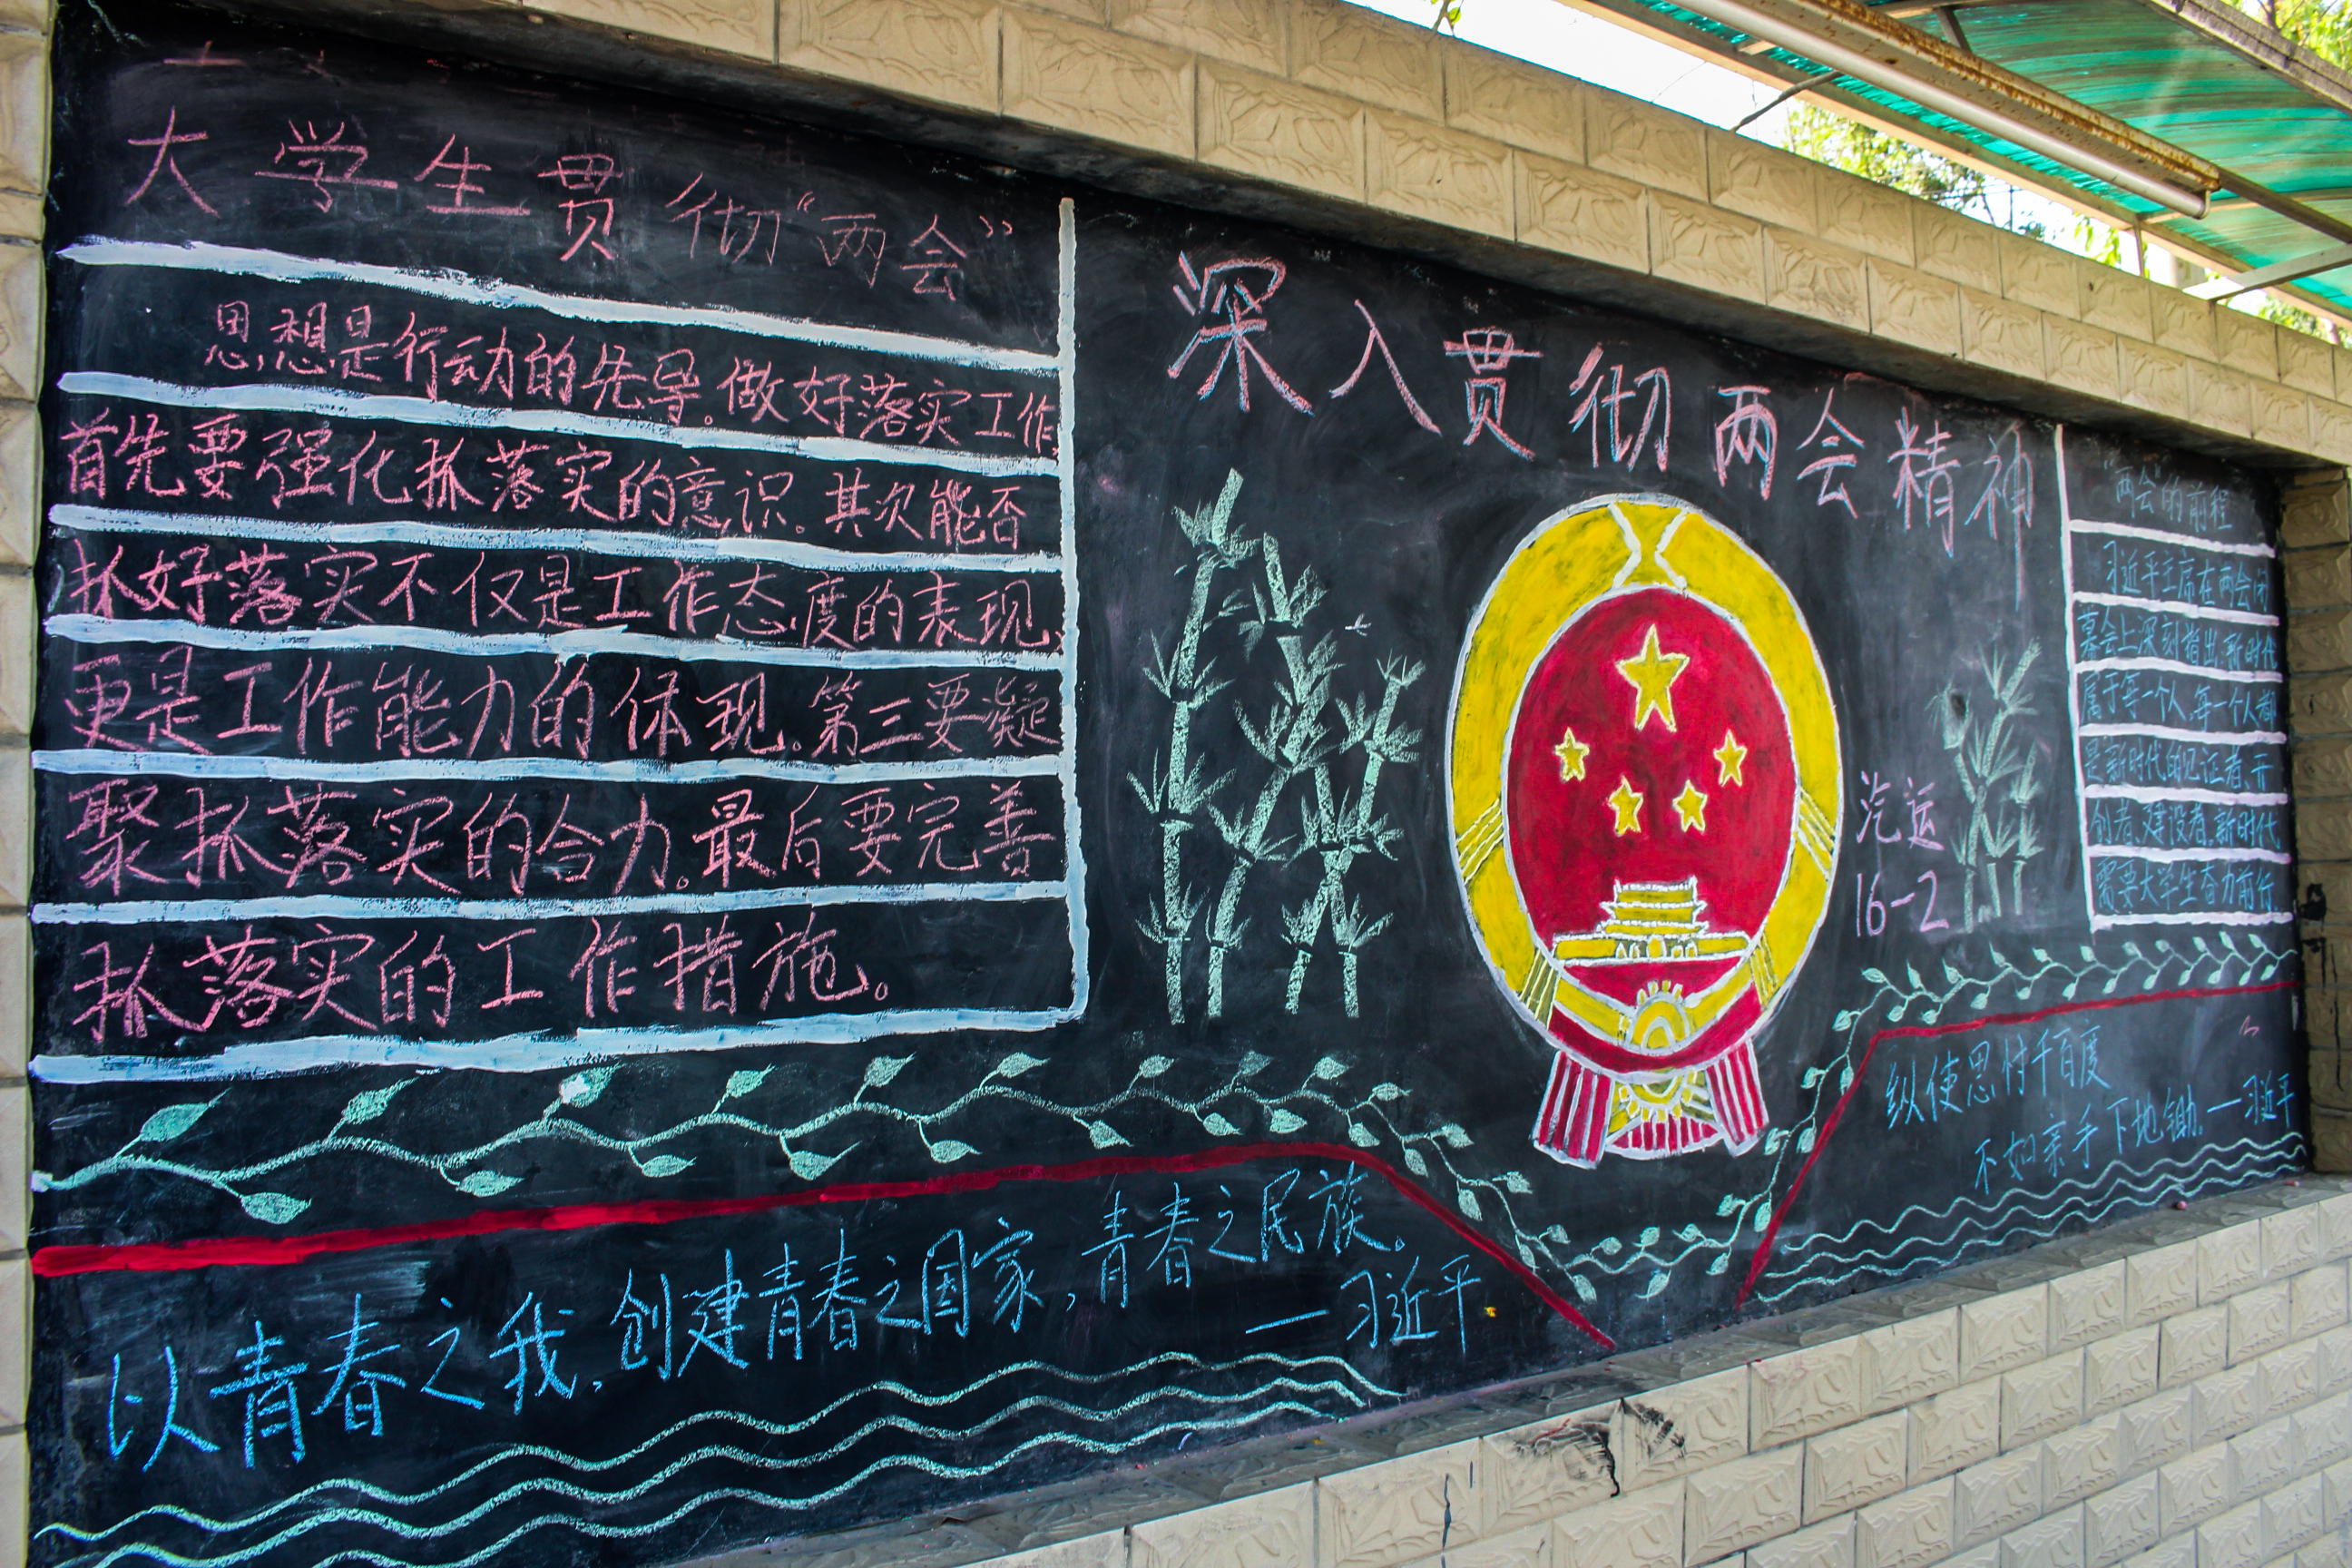 大学生贯彻“两会”
思想是行动的先导。做好落实工作,
首先要强化抓落实的意识。其次能否
抓好落实不仅是工作态度的表现,
更是工作能力的体现。第三要凝
聚抓落实的合力。最后要完善
抓落实的工作措施。
以青春之我,创建青春之国家,青春之民族。
—习近平
深入贯彻两会精神
汽运
16-2
“两会”的前程
习近平主席在两会闭
幕会上深刻指出,新时代
属于每一个人,每一个人都
是新时代的见证者、开
创者、建设者。新时代
需要大学生奋力前行
纵使思忖千百度
不如亲手下地锄。—习近平